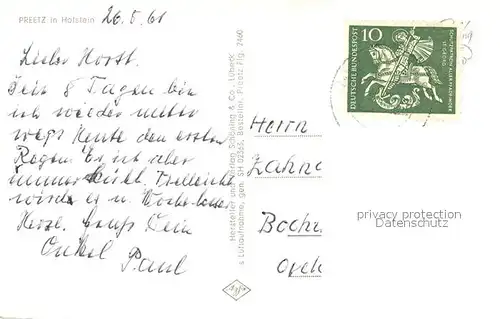 PREETZ in Holstein
26.5.61
Lieber Horst.
Seit 8 Tagen bin
ich wieder
wegs Heute den ersten
Regen. Es ist aber
immer kühl. Vielleicht
wird es n. Woche besser
Herzl. Gruß Dein
Onkel
Paul
Hersteller und Verlag Schöning & Co., Lübeck
Luftaufnahme, gen. SH
DEUTSCHE BUNDESPOST
10
ST. GEORG
Herrn
Zahna
Bochu
privacy protection
Datenschutz